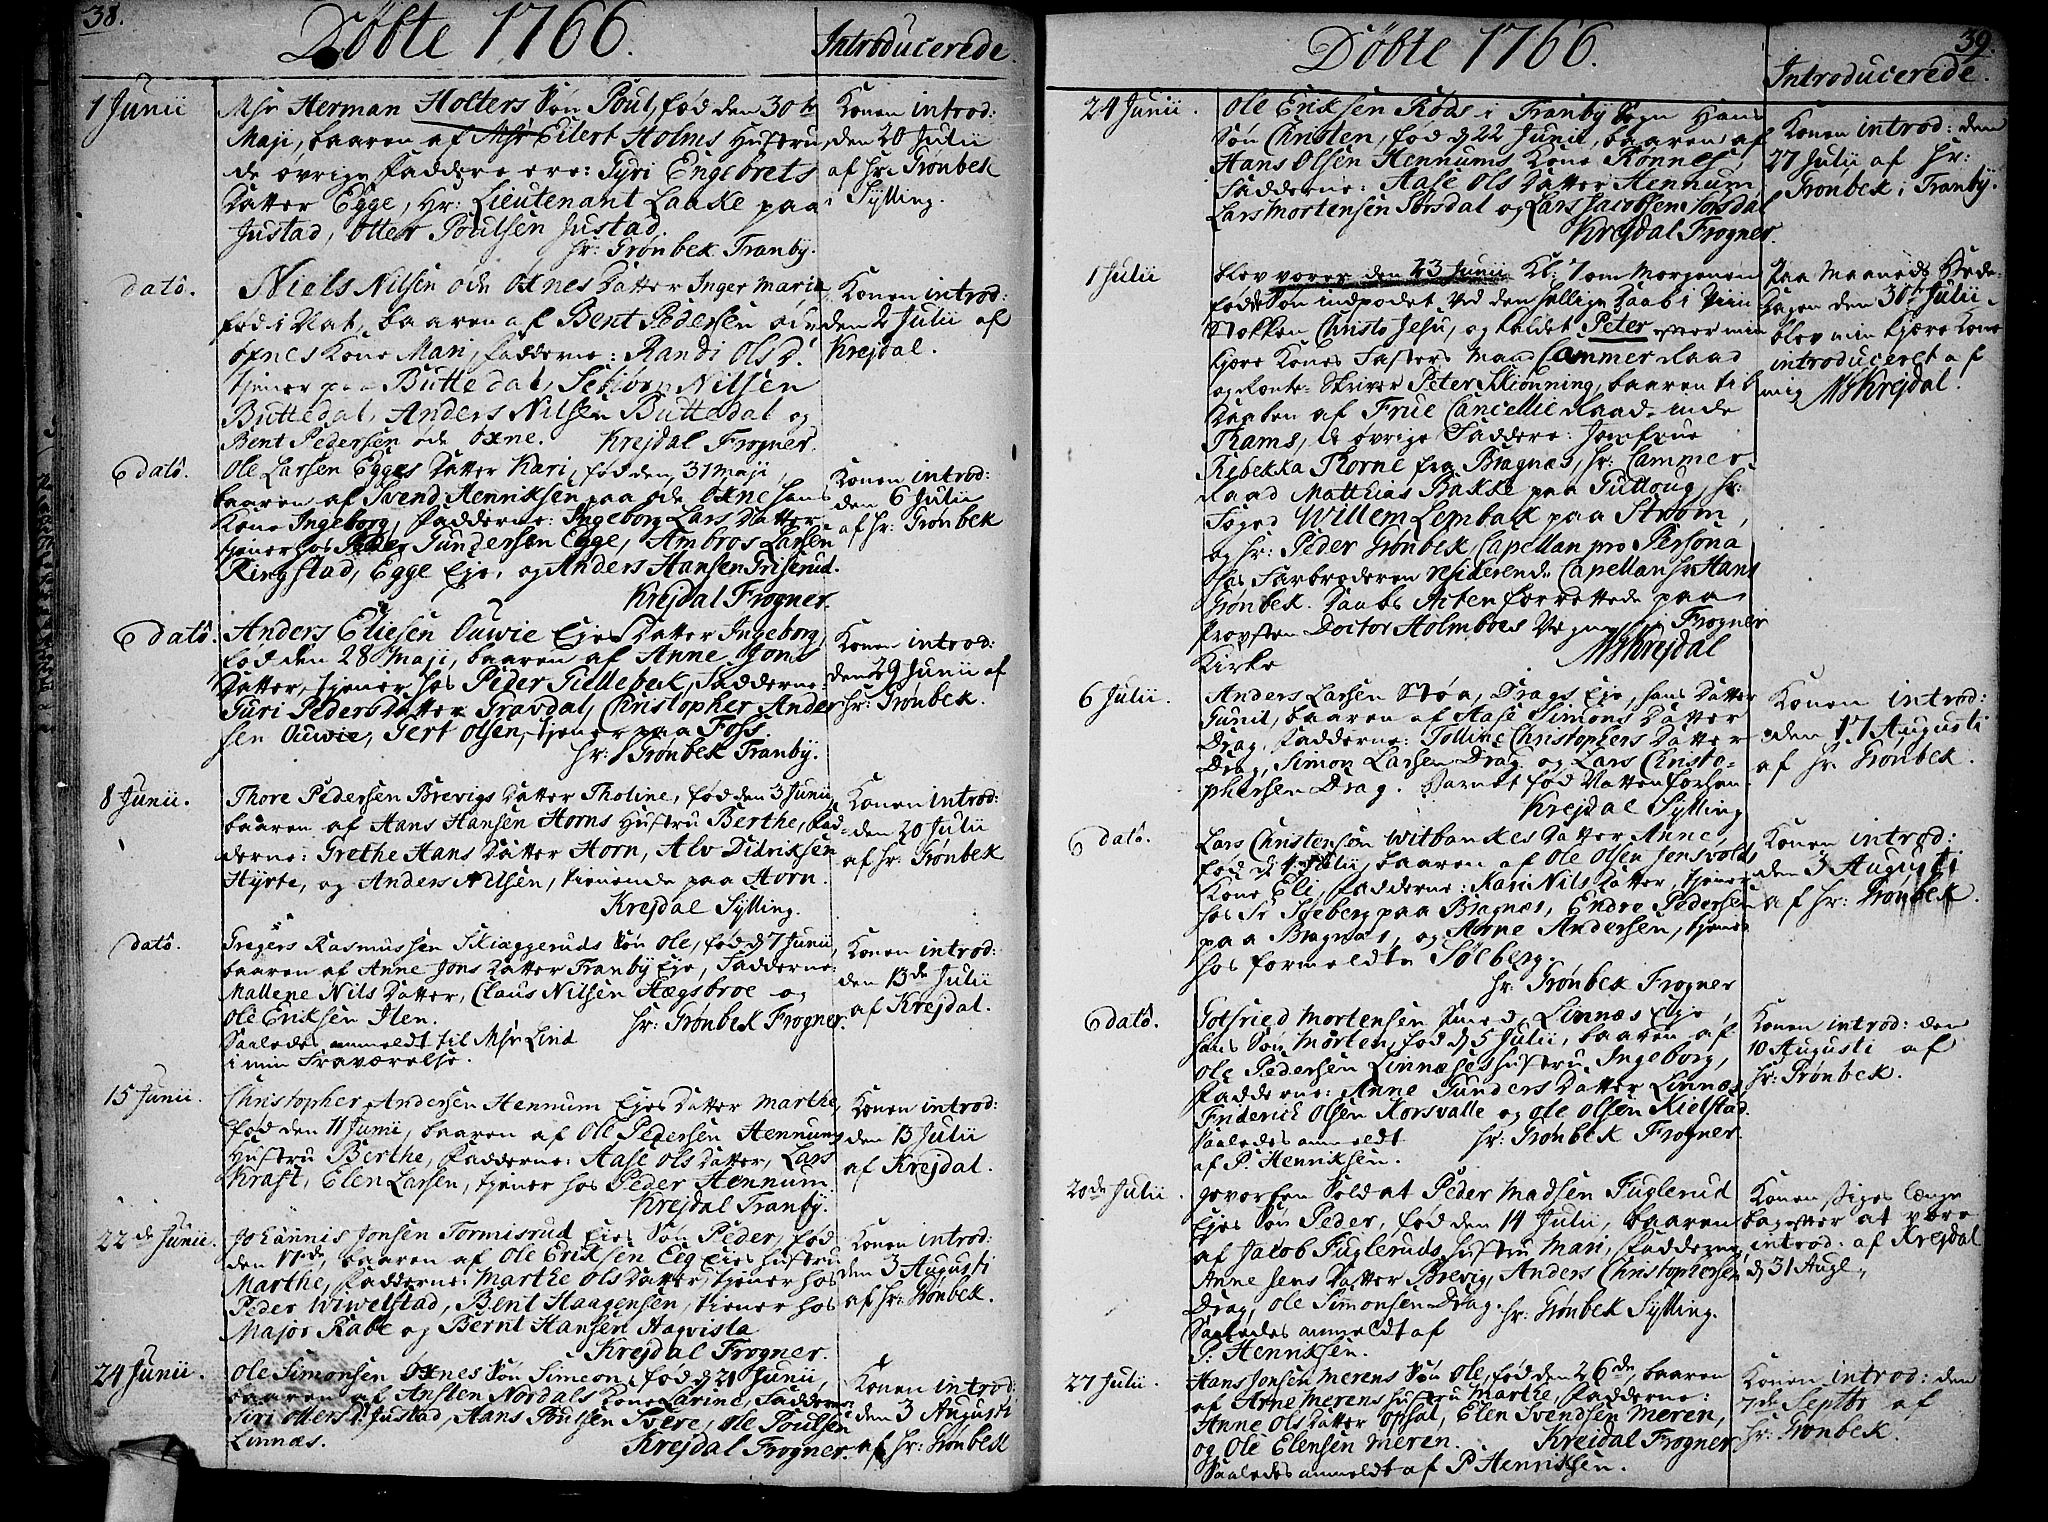 38.
Döbte 1766.
Introducerede.
1 Junii
Msr Herman Holters Søn Poul, fød den 30te
Maji, baaren af Msr Eilert Holms Hustru,
de øvrige Faddere ere: Gyri Engebrets
Datter Egge, Hr: Lieutenant Laake paa
Justad, Otter Poulsen Justad.
Hr: Grønbek Tranby.
Konen introd:
den 20 Julii
af Hr: Grønbek
i Sylling.
dató.
Niels Nilsen øde Oxnes Datter Inger Maria
fød i Nat, baaren af Bent Pedersen øde
Oxnes Kone Mari, Fadderne: Randi Ols D:
tjener paa Buttedal, Sebjørn Nilsen
Buttedal, Anders Nilsen Buttedal og
Bent Pedersen øde Oxne. Krejdal Frogner.
Konen introd:
den 2 Julii af
Krejdal.
6 dató.
Ole Larsen Egges Datter Kari, fød den 31 Maji,
baaren af Svend Henriksen paa øde Oxne hans
Kone Ingeborg, Fadderne: Ingeborg Lars Datter
tjener hos Peder Gundersen Egge, Ambros Larsen
Ringstad, Egge Eje, og Anders Hansen Griserud.
Krejdal Frogner.
Konen introd:
den 6 Julii
af Hr: Grønbek
6 dató.
Anders Eliesen Ouwie Ejes Datter Ingeborg,
fød den 28 Maji, baaren af Anne Jons
Datter, tjener hos Peder Gillebek, Fadderne:
Guri Peders Datter Gravdal, Christopher Ander
sen Ouwie, Gert Olsen, tjener paa Foss.
Hr: Grønbek Tranby.
Konen introd:
den 29 Junii af
Hr: Grønbek.
8 Junii.
Thore Pedersen Brevigs Datter Tholine, fød den 3 Junii,
baaren af Hans Hansen Horns Hustru Berthe, Fad-
derne: Grethe Hans Datter Horn, Alv Didriksen
Hyrte, og Anders Nilsen, tienende paa Horn.
Krejdal Sylling.
Konen introd:
den 20 Julii
af Hr: Grønbek
dató.
Gregers Rasmussen Skiaggeruds Søn Ole, fød d 7 Junii,
baaren af Anne Jons Datter Tranby Eje, Fadderne:
Mallene Nils Datter, Claus Nilsen Hægsbroe og
Ole Eriksen Ilen. Hr: Grønbek Frogner.
Saaledes anmeldt til Msr Lind
i min Fraværelse.
Konen introd:
den 13de Julii
af Krejdal.
15 Junii.
Christopher Andersen Hennum Ejes Datter Marthe,
fød den 11 Junii, baaren af Ole Pedersen Hennums
Hustru Berthe, Fadderne: Aase Ols Datter, Lars
Kraft, Elen Larsen, tjener hos Peder Hennum.
Krejdal Tranby.
Konen introd:
den 13 Julii
af Krejdal.
22de Junii.
Johannis Jonsen Tormisrud Ejes Søn Peder, fød
den 17de, baaren af Ole Eriksen Eeg Ejes Hustru
Marthe, Fadderne: Marthe Ols Datter, tjener hos
Peder Wiwelstad, Bent Haagensen, tjener hos
Major Rabe og Bernt Hansen Hagvista
Krejdal Frogner.
Konen introd:
den 3 Augusti
af Hr: Grønbek.
24 Junii.
Ole Simonsen Oxnes Søn Simeon, fød d 21 Junii,
baaren af Ansten Nordals Kone Karine, Fadderne:
Siri Otters D: Justad, Hans Poulsen Svere, Ole Poulsen
Linnæs. Krejdal Frogner.
Konen introd:
den 3 Augusti
af Hr: Grønbek
39.
Döbte 1766.
Introducerede.
24 Junii.
Ole Eriksen Røds i Tranby Sogn Hans
Søn Christen, fød d 22 Junii, baaren af
Hans Olsen Hennums Kone Ronnes,
Fadderne: Aase Ols Datter Hennum,
Lars Mortensen Sørsdal og Lars Jacobsen Sørsdal
Krejdal Frogner.
Konen introd: den
27 Julii af Hr:
Grønbek i Tranby.
1 Julii
blev vores den 23 Junii Kl: 7 om Morgenen
fødde Søn indpodet ved den hellige Daab i Viin
Stokken Christo Jesu, og kaldet Peter efter min
kjere Kones Søsters Mand Cammer Raad
og Rente-Skriver Peter Skiønning, baaren til
Daaben af Frue Cancellie Raadinde
Thams, de øvrige Faddere: Jomfrue
Rebekka Thorne fra Bragnæs, Hr: Cammer
Raad Matthias Bakke paa Gulloug, Hr:
Foged Willem Lembak paa Strøm,
og Hr: Peder Grønbek Capellan pro Persona
hos Farbroderen residerende Capellan Hr Hans
Grønbek. Daabs Acten forrettede paa
Provsten Doctor Holmboes Vegne i Frogner
Kirke MSKrejdal
Paa Maaneds Bede-
Dagen den 30te Julii
blev min kjere Kone
introduceret af
mig MSKrejdal.
6 Julii.
Anders Larsen Støa, Drags Eje, hans Datter
Gunil, baaren af Aase Simons Datter
Drag, Fadderne: Tolline Christophers Datter
Drag, Simon Larsen Drag og Lars Christo-
phersen Drag. Barnet fød Natten forhen.
Krejdal Sylling
Konen introd:
den 17 Augusti
af Hr Grønbek.
6 dató.
Lars Christensøn Witbankes Datter Anne,
fød d 4 Julii, baaren af Ole Olsen Jensvolds
Kone Eli, Fadderne: Kari Nils Datter, tjener
hos Sr Søeberg paa Bragnæs, Endre Pedersen
paa Bragnæs, og Arne Andersen, tjener
hos formeldte Sølberg.
Hr: Grønbek Frogner
Konen introd:
den 3 Augusti
af Hr: Grønbek.
6 dató.
Gotfried Mortensen Smed, Linnæs Eje
hans Søn Morten, fød d 5 Julii, baaren af
Ole Pedersen Linnæses Hustru Ingeborg,
Fadderne: Anne Gunders Datter Linnæs,
Friderich Olsen Korsvalle og Ole Olsen Kielstad.
Saaledes anmeldt Hr: Grønbek Frogner.
af P. Henriksen.
Konen introd: den
10 Augusti af
Hr: Grønbek.
20de Julii.
gevorben Soldat Peder Madsen Fuglerud
Ejes Søn Peder, fød den 14 Julii, baaren
af Jacob Fugleruds Hustru Mari, Fadderne,
Anne Jens Datter Brevig, Anders Christophersen
Drag, Ole Simonsen Drag. Hr: Grønbek Sylling.
Saaledes anmeldt af
P: Henriksen.
Konen siges længe
bagefter at være
introd: af Krejdal
d 31 Aug.
27 Julii.
Hans Jonsen Merens Søn Ole, fød den 26de, baaren
af Arne Merens Hustru Marthe, Fadderne:
Anne Ols Datter Opsal, Elen Svendsen Meren,
og Ole Elensen Meren. Krejdal Frogner
Saaledes anmeldt af P Henriksen.
Konen introd: den
7de Septbr af
Hr: Grønbek.